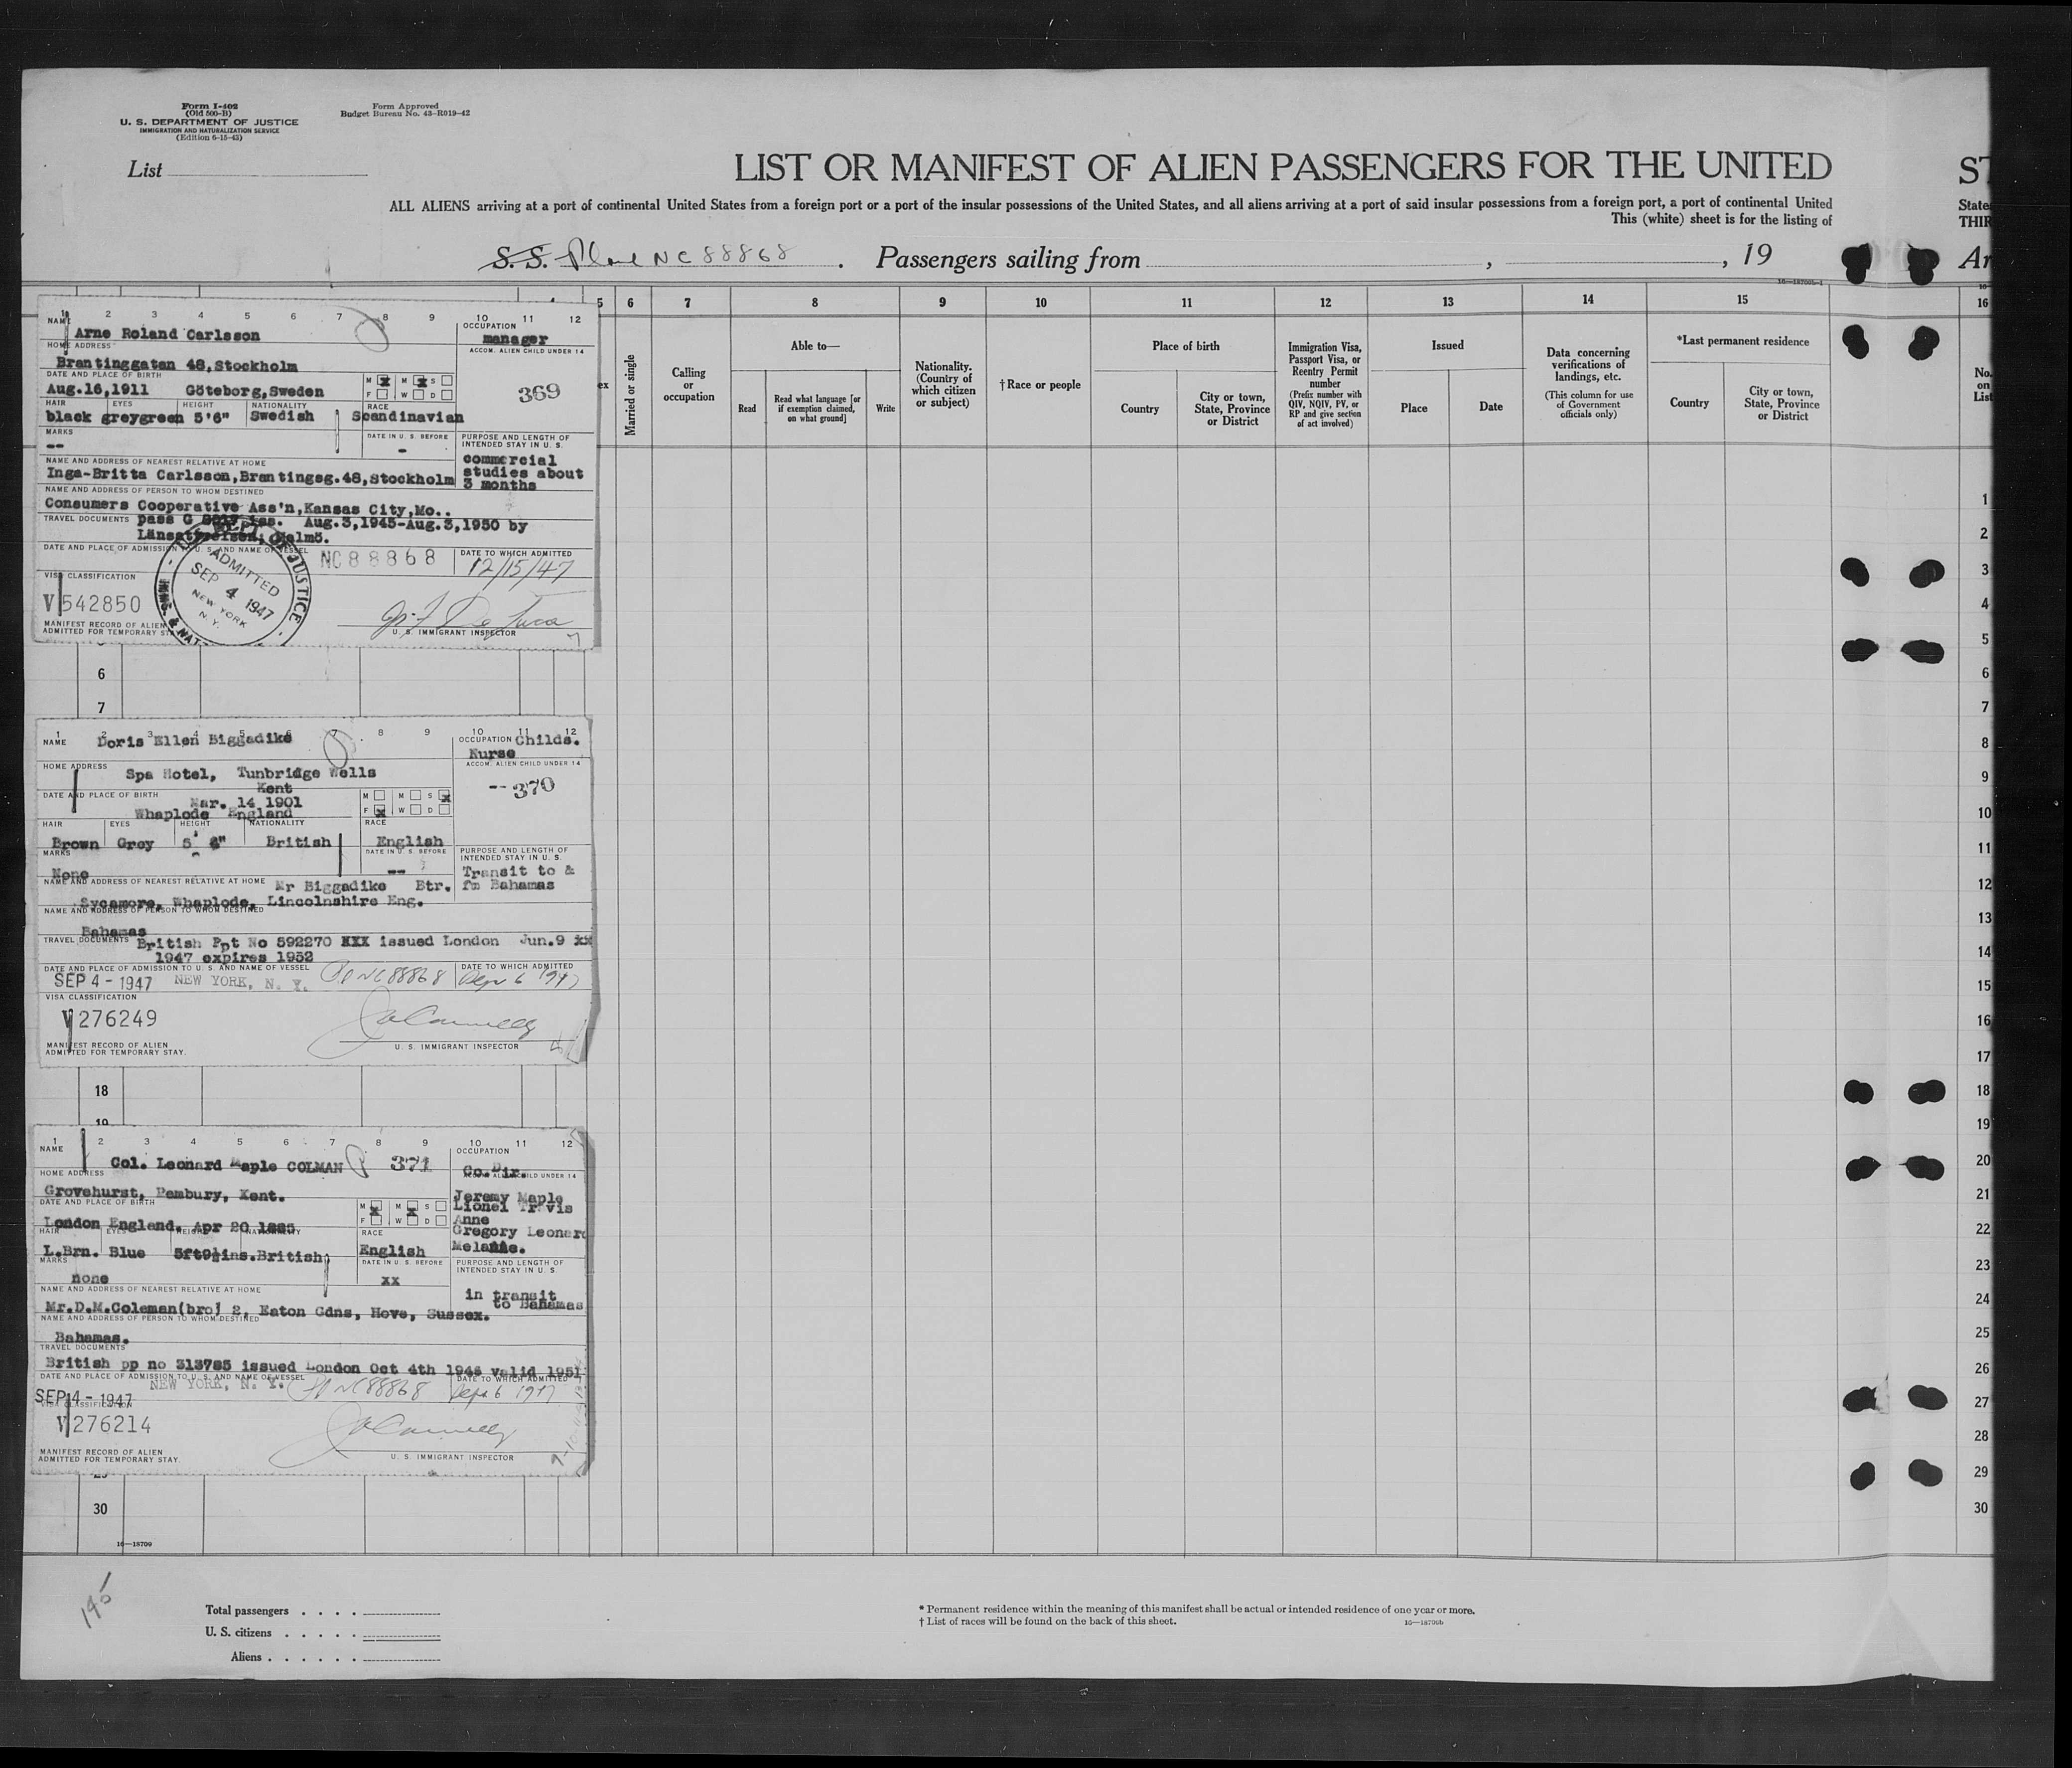 Form I-402
(Old 500-B)
U. S. DEPARTMENT OF JUSTICE
IMMIGRATION AND NATURALIZATION SERVICE
(Edition 6-15-43)
Form Approved
Budget Bureau No. 43-R019-42
List
LIST OR MANIFEST OF ALIEN PASSENGERS FOR THE UNITED
ALL ALIENS arriving at a port of continental United States from a foreign port or a port of the insular possessions of the United States, and all aliens arriving at a port of said insular possessions from a foreign port, a port of continental United
This (white) sheet is for the listing of
S.S. Plane NC 88868 . Passengers sailing from , , 19
ST
State
THIR
Ar
5 6 7 8 9 10 11 12 13 14 15 16
ex
Married or single
Calling
or
occupation
Able to—
Read
Read what language [or
if exemption claimed,
on what ground]
Write
Nationality.
(Country of
which citizen
or subject)
†Race or people
Place of birth
Country
City or town,
State, Province
or District
Immigration Visa,
Passport Visa, or
Reentry Permit
number
(Prefix number with
QIV, NQIV, PV, or
RP and give section
of act involved)
Issued
Place
Date
Data concerning
verifications of
landings, etc.
(This column for use
of Government
officials only)
*Last permanent residence
Country
City or town,
State, Province
or District
No.
on
List
1 2 3 4 5 6 7 8 9 10 11 12
NAME Arne Roland Carlsson
OCCUPATION manager
HOME ADDRESS
Brantinggatan 48,Stockholm
ACCOM. ALIEN CHILD UNDER 14
369
DATE AND PLACE OF BIRTH
Aug.16,1911 Göteborg,Sweden
M x M x S
F W D
HAIR EYES HEIGHT NATIONALITY RACE
black greygreen 5'6" Swedish Scandinavian
MARKS
--
DATE IN U. S. BEFORE
-
PURPOSE AND LENGTH OF
INTENDED STAY IN U. S.
commercial
studies about
3 months
NAME AND ADDRESS OF NEAREST RELATIVE AT HOME
Inga-Britta Carlsson,Brantingsg.48,Stockholm
NAME AND ADDRESS OF PERSON TO WHOM DESTINED
Consumers Cooperative Ass'n,Kansas City,Mo..
TRAVEL DOCUMENTS pass G iss. Aug.3,1945-Aug.3,1950 by
Malmö.
DATE AND PLACE OF ADMISSION TO U. S. AND NAME OF VESSEL
NC 88868
DATE TO WHICH ADMITTED
12/15/47
ADMITTED
SEP 4 1947
NEW YORK
N. Y.
VISA CLASSIFICATION
V 542850
MANIFEST RECORD OF ALIEN
ADMITTED FOR TEMPORARY
U. S. IMMIGRANT INSPECTOR
6
7
1 2 3 4 5 6 7 8 9 10 11 12
NAME Doris Ellen Biggadike
OCCUPATION Childs.
Nurse
HOME ADDRESS
Spa Hotel, Tunbridge Wells
Kent
ACCOM. ALIEN CHILD UNDER 14
-- 370
DATE AND PLACE OF BIRTH
Mar. 14 1901
Whaplode England
M M S x
F x W D
HAIR EYES HEIGHT NATIONALITY RACE
Brown Grey 5' British English
MARKS
None
DATE IN U. S. BEFORE
--
PURPOSE AND LENGTH OF
INTENDED STAY IN U. S.
Transit to &
fm Bahamas
NAME AND ADDRESS OF NEAREST RELATIVE AT HOME Mr Biggadike Btr.
Sycamore, Whaplode, Lincolnshire Eng.
NAME AND ADDRESS OF PERSON TO WHOM DESTINED
Bahamas
TRAVEL DOCUMENTS British Ppt No 592270 XXX issued London Jun.9 xx
1947 expires 1952
DATE AND PLACE OF ADMISSION TO U. S. AND NAME OF VESSEL
SEP 4 - 1947 NEW YORK, N. Y. NC88868
DATE TO WHICH ADMITTED
Sept 6 1947
VISA CLASSIFICATION
V 276249
MANIFEST RECORD OF ALIEN
ADMITTED FOR TEMPORARY STAY.
U. S. IMMIGRANT INSPECTOR
18
19
1 2 3 4 5 6 7 8 9 10 11 12
NAME
Col. Leonard Maple COLMAN 371
OCCUPATION
Co.Dir.
HOME ADDRESS
Grovehurst, Pembury, Kent.
Jeremy Maple
Lionel Travis
Anne
Gregory Leonard
Melanie.
DATE AND PLACE OF BIRTH
London England. Apr 20 1885
M x M x S
F W D
HAIR RACE
L.Brn. Blue 5ft9½ins.British English
MARKS
none
DATE IN U. S. BEFORE
xx
PURPOSE AND LENGTH OF
INTENDED STAY IN U. S.
in transit
to Bahamas
NAME AND ADDRESS OF NEAREST RELATIVE AT HOME
Mr.D.M.Coleman(bro) 2, Eaton Gdns, Hove, Sussex.
NAME AND ADDRESS OF PERSON TO WHOM DESTINED
Bahamas.
TRAVEL DOCUMENTS
British pp no 313785 issued London Oct 4th 1946 valid 1951
DATE AND PLACE OF ADMISSION TO U. S. AND NAME OF VESSEL
NEW YORK, N. Y. NC88868
DATE TO WHICH ADMITTED
Sept 6 1947
SEP 4 - 1947
VISA CLASSIFICATION
V 276214
MANIFEST RECORD OF ALIEN
ADMITTED FOR TEMPORARY STAY.
U. S. IMMIGRANT INSPECTOR
30
16—18709
1
2
3
4
5
6
7
8
9
10
11
12
13
14
15
16
17
18
19
20
21
22
23
24
25
26
27
28
29
30
145
Total passengers . . . .
U. S. citizens . . . . .
Aliens . . . . . .
* Permanent residence within the meaning of this manifest shall be actual or intended residence of one year or more.
† List of races will be found on the back of this sheet.